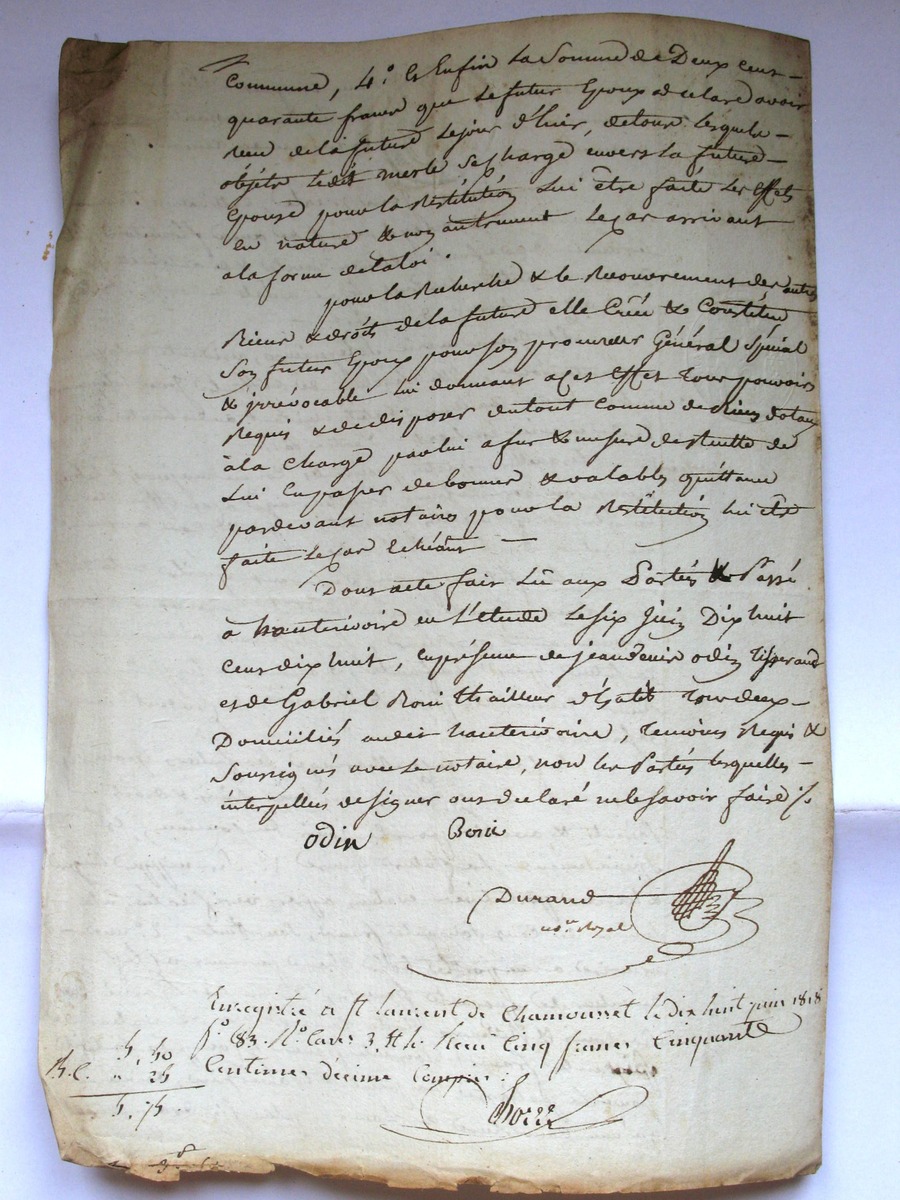 Commune, 4.° Et Enfin La Somme de Deux cent
quarante francs que Le futur Epoux declare avoir
Reçu de la future Le jour d'hier, de tous lesquels
objets Ledit merle Se charge envers La future
Epouse pour La Restitution Lui être faite Les Effets
En nature & non autrement Le cas arrivant
a la forme de la loi.
pour La Recherche & le Recouvrement des autres
Biens & droits de la future elle Créé & Constitue
Son futur Epoux pour Son procureur Général Spécial
& jrrévocable lui donnant a cet Effet Tous pouvoirs
Requis & de disposer du tout Comme de Biens dotaux
à La Charge par lui a fur & mesure des Recette de
Lui En passer de bonnes & valables quittance
pardevant notaire pour La Restitution lui être
faite Le Cas Echéant
Dont acte fait Lû aux Parties & Passé
a hauterivoire en L'étude Le Six Juin Dix huit
Cent dix huit, En présence de jean denis odin Tisserand
et de Gabriel Thailleur d'habit Tous deux
Domiciliés audit hauterivoire, Temoins Requis &
Soussignés avec Le notaire, non les Parties lesquelles
interpellés de signer ont déclaré ne le savoir faire ./.
odin
Durand
no.re Royal
Enregistré a St Laurent de Chamousset le dix huit juin 1818
f.° 83. R.° Case 3. Reçu Cinq francs Cinquante
Centimes décime Compris.
5. 50
" 25
5. 75